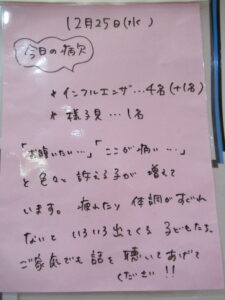 12月25日(水)
今日の病欠
* インフルエンザ…4名(+1名)
* 様子見…1名
「お腹いたい…」「ここが痛い…」
と色々と訴える子が増えて
います。疲れたり体調がすぐれ
ないといろいろ出てくる子どもたち。
ご家庭でも話を聴いてあげて
ください!!